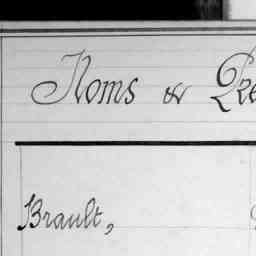 Noms & Pré
Brault,